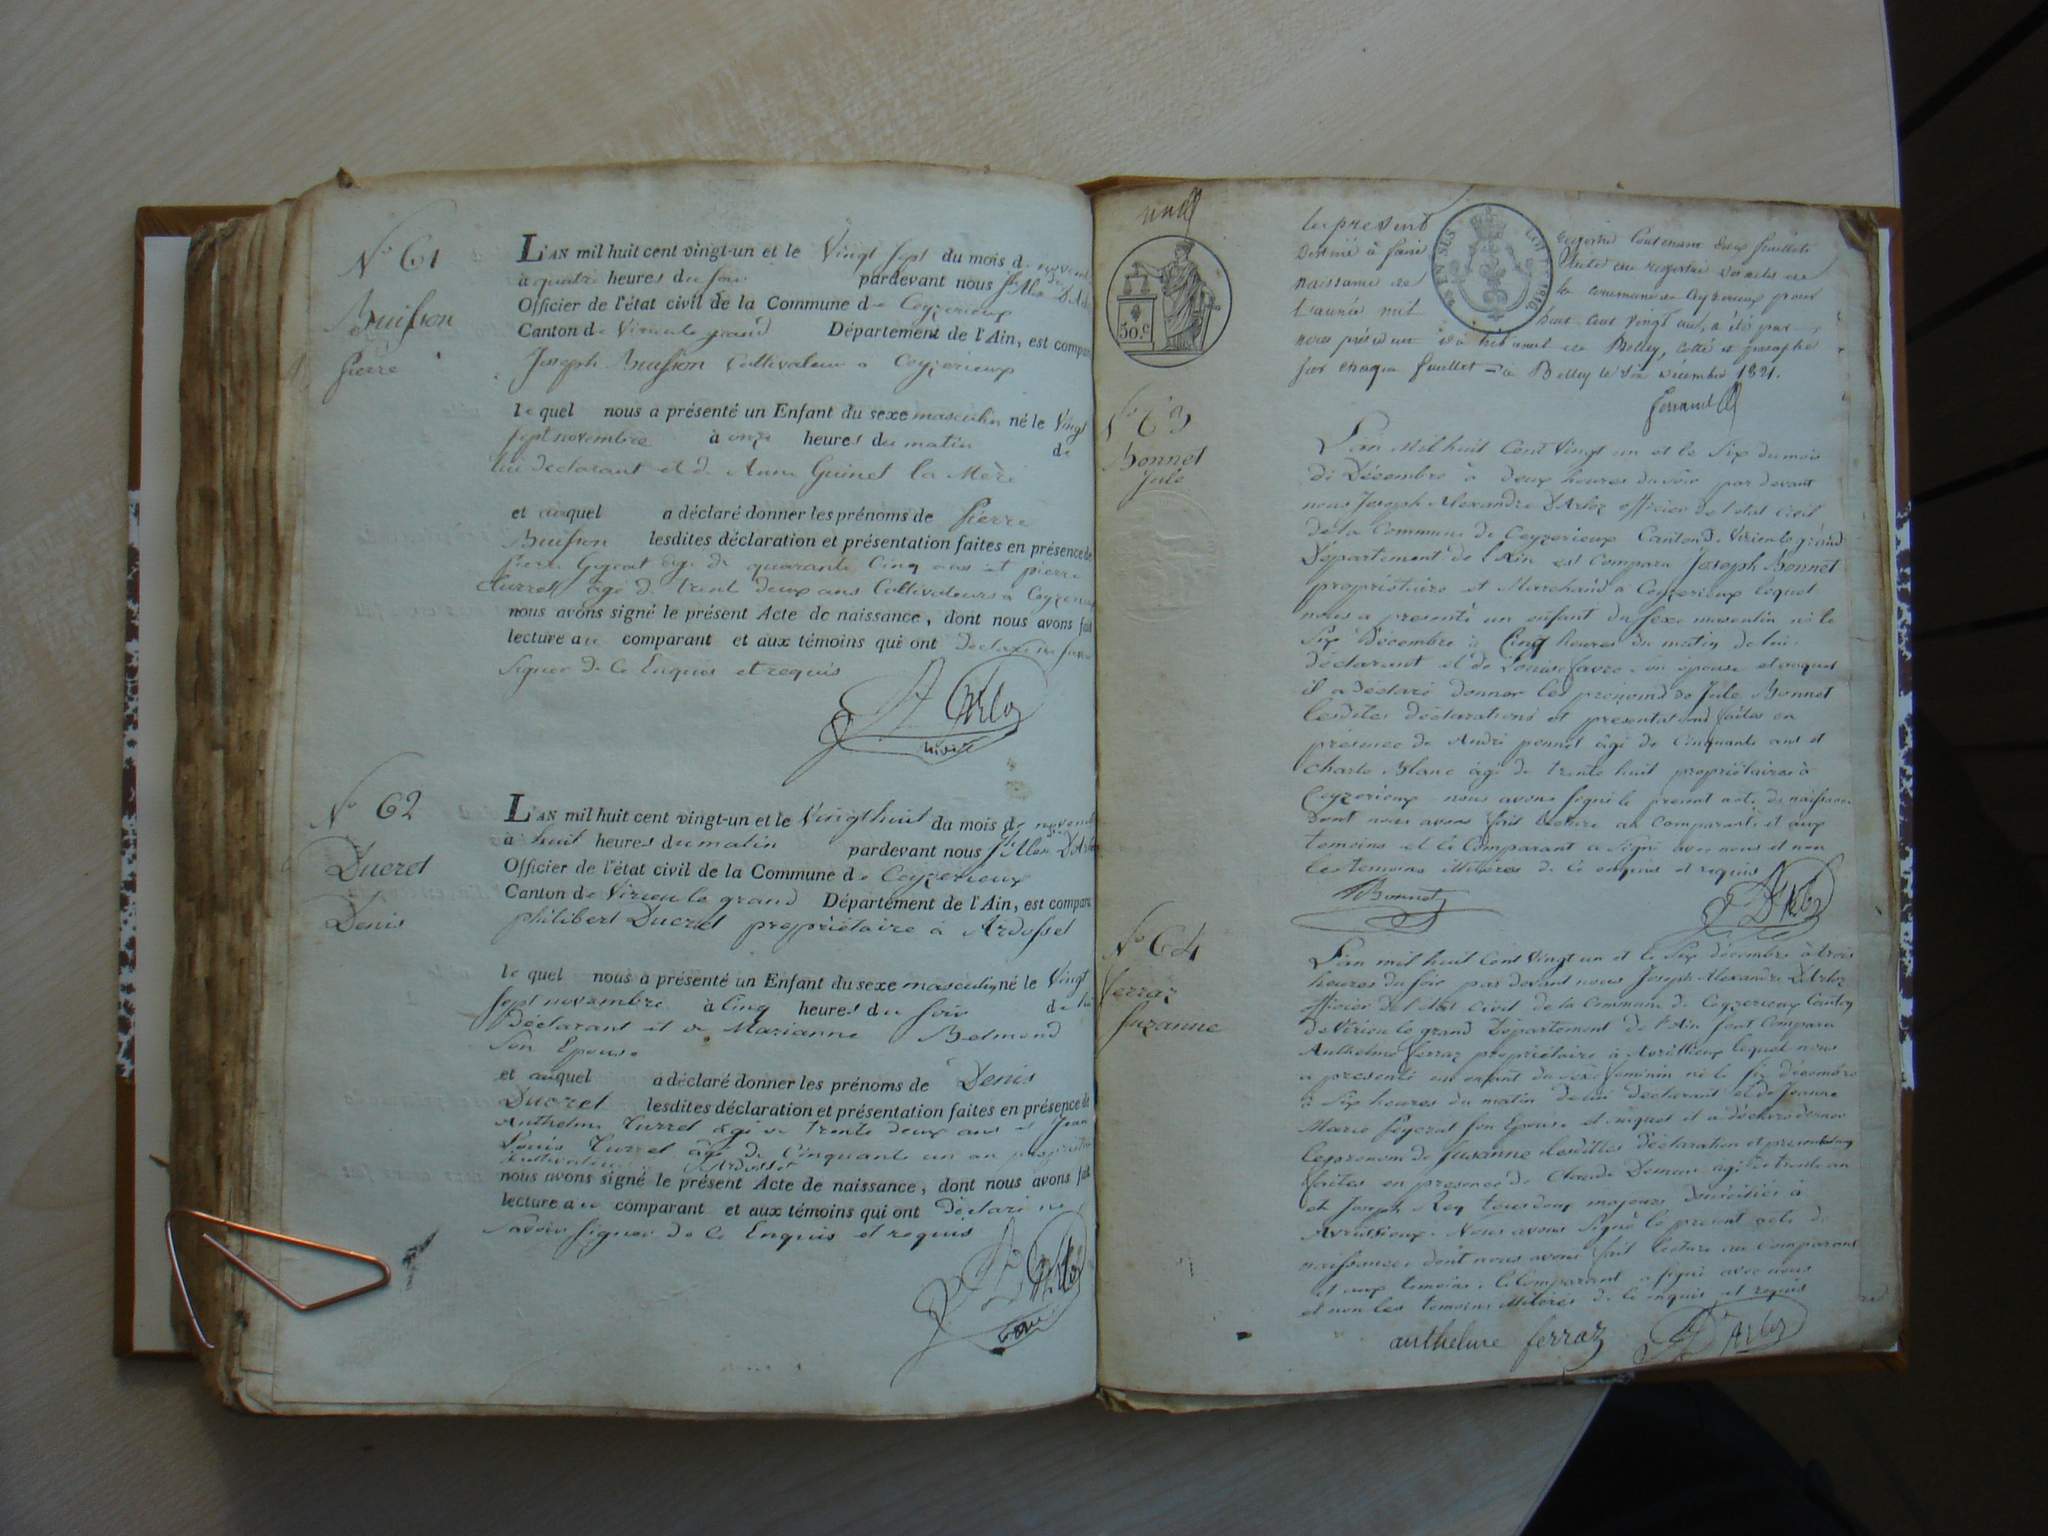 N.o 61
Buisson
pierre
L'AN mil huit cent vingt-un et le Vingt sept du mois de novembre
à quatre heures du soir pardevant nous Jh Alex DArloz
Officier de l'état civil de la Commune de Ceyzerieux
Canton de Virieu le grand Département de l'Ain, est comparu
Joseph Buisson Cultivateur a Ceyzerieux
lequel nous a présenté un Enfant du sexe masculin né le Vingt
sept novembre à onze heures du matin de
lui declarant et de Anne Guinet la Mère
et auquel a déclaré donner les prénoms de pierre
Buisson lesdites déclaration et présentation faites en présence de
pierre agé de quarante Cinq ans et pierre
agé de trente deux ans Cultivateurs a Ceyzerieux
nous avons signé le présent Acte de naissance, dont nous avons fait
lecture au comparant et aux témoins qui ont declaré ne savoir
signer de Ce Enquis et requis
DArloz
maire
N.o 62
Ducret
Denis
L'AN mil huit cent vingt-un et le Vingt huit du mois de novembre
à huit heures du matin pardevant nous Jh Alex DArloz
Officier de l'état civil de la Commune de Ceyzerieux
Canton de Virieu le grand Département de l'Ain, est comparu
philibert Ducret propriétaire à Ardosset
lequel nous a présenté un Enfant du sexe masculin né le Vingt
sept novembre à Cinq heures du soir de lui
Déclarant et de Marianne Belmond
son Epouse
et auquel a déclaré donner les prénoms de Denis
Ducret lesdites déclaration et présentation faites en présence de
Anthelme Turrel agé de trente deux ans et Jean
Louis Turrel agé de Cinquante un an propriétaires
Ardosset
nous avons signé le présent Acte de naissance, dont nous avons fait
lecture au comparant et aux témoins qui ont déclaré ne
savoir signer de Ce Enquis et requis
DArloz
maire
un
50.c
LOI DE 1816.
EN SUS
le present registre Contenant deux feuillets
destiné à faire suite au registre des actes de
naissance de la commune de Ceyzerieux pour
l'année mil huit cent vingt un, a été par
nous président du tribunal de Belley, cotté et paraphé
sur chaque feuillet à Belley le six decembre 1821.
ferrand
N.o 63
Bonnet
Jule
L'an Mil huit Cent Vingt un et le Six du mois
de Décembre à deux heures du soir par devant
nous Joseph Alexandre DArloz officier de l'état Civil
de la Commune de Ceyzerieux Canton de Virieu le grand
Département de l'Ain est Comparu Joseph Bonnet
propriétaire et Marchand à Ceyzerieux lequel
nous a presenté un enfant du sexe masculin né le
Six Décembre à Cinq heures du matin de lui
déclarant et de Louise favre son epouse et auquel
il a déclaré donner les prenoms de Jule Bonnet
lesdites déclarations et presentations faites en
présence de André pennet âgé de Cinquante ans et
Charle Blanc âgé de trente huit propriétaires à
Ceyzerieux nous avons signé le present acte de naissance
dont nous avons fait lecture au Comparant et aux
temoins et le Comparant a signé avec nous et non
les temoins illiteres de Ce enquis et requis
Bonnet
DArloz
N.o 64
ferraz
Suzanne
L'an mil huit Cent Vingt un et le Six décembre à trois
heures du soir par devant nous Joseph Alexandre DArloz
officier de l'état Civil de la Commune de Ceyzerieux Canton
de Virieu le grand Département de l'Ain sont Comparu
Anthelme ferraz propriétaire à lequel nous
a presenté un enfant du sexe feminin né le Six décembre
à Six heures du matin de lui declarant et de Jeanne
Marie peyerat son Epouse et auquel il a déclaré donner
le prenom de Susanne lesdittes déclaration et presentation
faites en presence de Claude Dumas agé de trente an
et Joseph Rey tous deux majeurs domiciliés à
Avrissieux. Nous avons Signé le présent acte de
naissance dont nous avons fait lecture au Comparant
et aux temoins. le Comparant a signé avec nous
et non les temoins illiterés de Ce enquis et requis
anthelme ferraz
DArloz